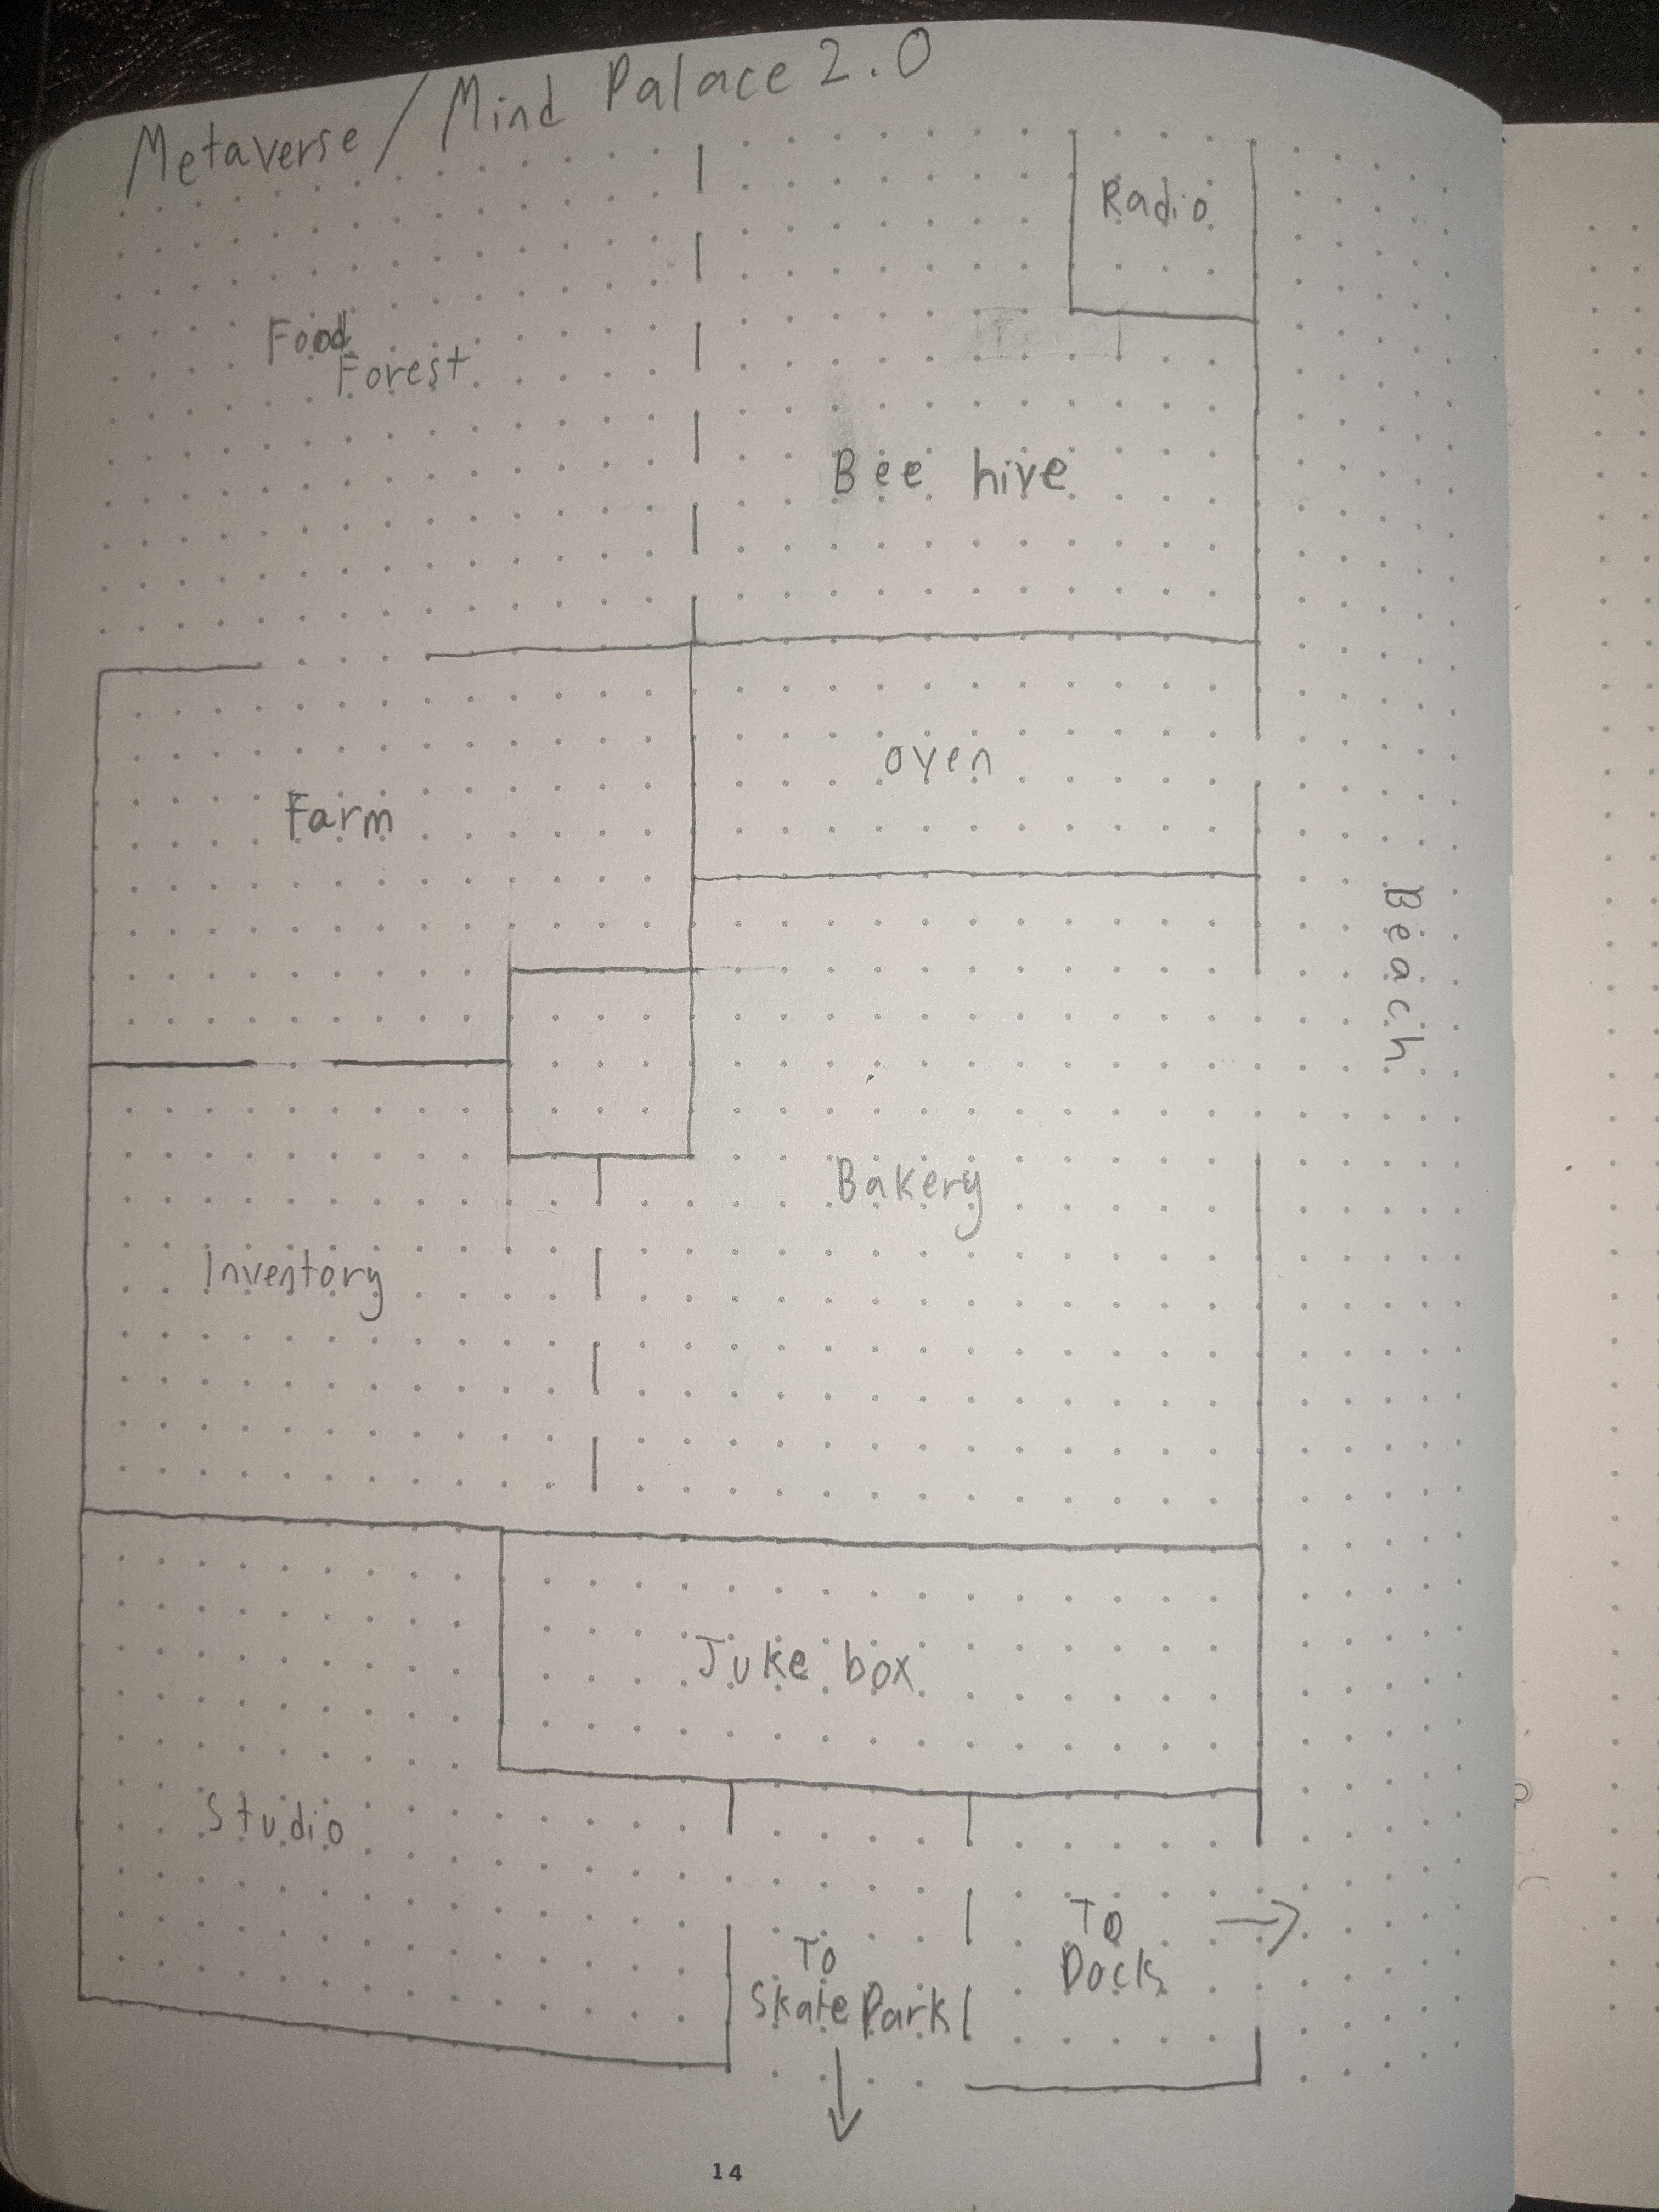 Metaverse / Mind Palace 2.0
Radio
Food
Forest
Bee hive
oven
Farm
Beach
Bakery
Inventory
Juke box
Studio
To
Dock
To
Skate Park
14